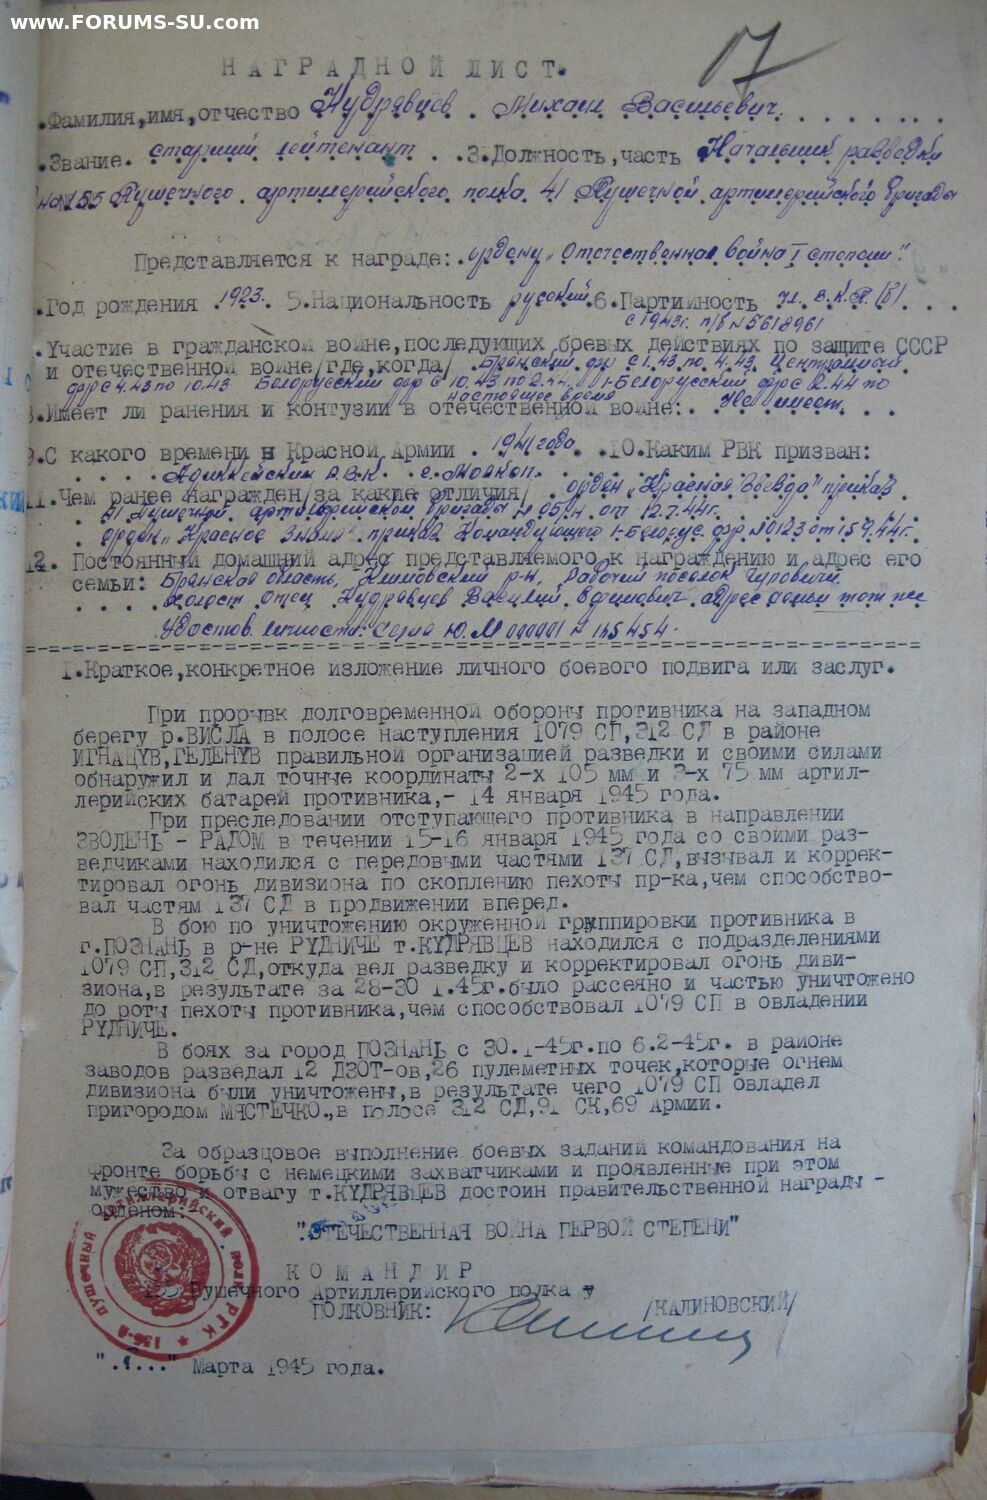 www.FORUMS-SU.com
17
НАГРАДНОЙ ЛИСТ.
.Фамилия,имя,отчество Кудрявцев Михаил Васильевич
.Звание. старший лейтенант 3.Должность,часть Начальник разведки
155 Пушечного артиллерийского полка 41 Пушечной артиллерийского бригады
Представляется к награде: ордену „Отечественная война I степени".
.Год рождения 1923. 5.Национальность русский 6.Партийность чл. В.К.П.(б)
с 1943г. п/б №5618961
.Участие в гражданской войне,последующих боевых действиях по защите СССР
и отечественной войне/где,когда/ Брянский фр с 1.43 по 4.43 Центральный
фр с 4.43 по 10.43 Белорусский фр с 10.43 по 2.44 1-Белорусский фр с 2.44 по
настоящее время
8.Имеет ли ранения и контузии в отечественной войне: Не имеет.
9.С какого времени в Красной Армии 1941 года. 10.Каким РВК призван:
Р.В.К. г. Майкоп.
11.Чем ранее награжден/за какие отличия/ орден „Красная Звезда" приказ
41 Пушечной артиллерийской бригады № 05/н от 12.7.44г.
орден „Красное Знамя" приказ Командующего 1-Белорус. фр № 0123 от 15 7.44г.
12. Постоянный домашний адрес представляемого к награждению и адрес его
семьи: Брянская область, Климовский р-н, Рабочий поселок Чуровичи.
Холост отец Кудрявцев Василий Ефимович адрес семьи тот же
Удостов. личности: Серия Ю. М №145454.
1.Краткое,конкретное изложение личного боевого подвига или заслуг.
При прорывк долговременной обороны противника на западном
берегу р.ВИСЛА в полосе наступления 1079 СП,312 СД в районе
ИГНАЦУВ,ГЕЛЕНУВ правильной организацией разведки и своими силами
обнаружил и дал точные координаты 2-х 105 мм и 3-х 75 мм артил-
лерийских батарей противника,- 14 января 1945 года.
При преследовании отступающего противника в направлении
ЗВОЛЕНЬ - РАДОМ в течении 15-16 января 1945 года со своими раз-
ведчиками находился с передовыми частями 137 СД,вызывал и коррек-
тировал огонь дивизиона по скоплению пехоты пр-ка,чем способство-
вал частям 137 СД в продвижении вперед.
В бою по уничтожению окруженной группировки противника в
г.ПОЗНАНЬ в р-не РУДНИЧЕ т.КУДРЯВЦЕВ находился с подразделениями
1079 СП,312 СД,откуда вел разведку и корректировал огонь диви-
зиона,в результате за 28-30 1.45г.было рассеяно и частью уничтожено
до роты пехоты противника,чем способствовал 1079 СП в овладении
РУДНИЧЕ.
В боях за город ПОЗНАНЬ с 30.1-45г.по 6.2-45г. в районе
заводов разведал 12 ДЗОТ-ов,26 пулеметных точек,которые огнем
дивизиона были уничтожены,в результате чего 1079 СП овладел
пригородом МЯСТЕЧКО.,в полосе 312 СД,91 СК,69 Армии.
За образцовое выполнение боевых заданий командования на
фронте борьбы с немецкими захватчиками и проявленные при этом
мужество и отвагу т.КУДРЯВЦЕВ достоин правительственной награды -
орденом:
"ОТЕЧЕСТВЕННАЯ ВОЙНА ПЕРВОЙ СТЕПЕНИ"
КОМАНДИР
155 Пушечного Артиллерийского полка
ПОЛКОВНИК: /КАЛИНОВСКИЙ/
пушечный артиллерийский полк РГК
"......" Марта 1945 года.